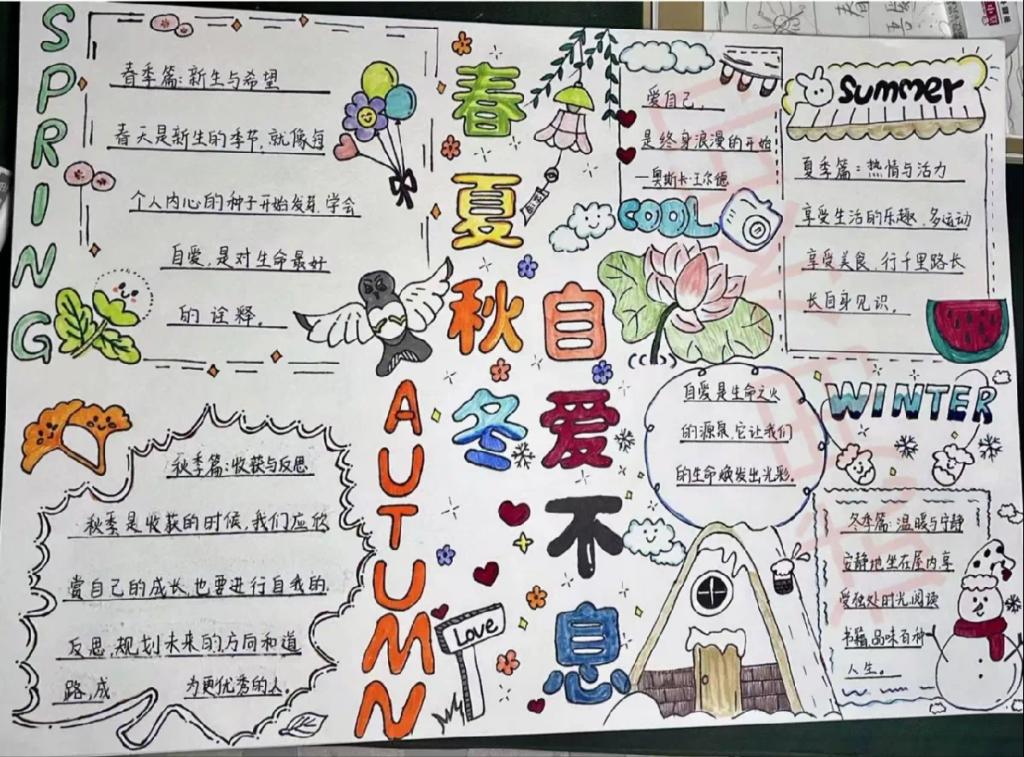 SPRING
春季篇:新生与希望
春天是新生的季节,就像每
个人内心的种子开始发芽,学会
自爱,是对生命最好
的诠释。
春夏秋冬
自爱不息
爱自己,
是终身浪漫的开始
—奥斯卡·王尔德
COOL
summer
夏季篇:热情与活力
享受生活的乐趣,多运动
享受美食,行千里路长
长自身见识。
AUTUMN
秋季篇:收获与反思
秋季是收获的时候,我们应欣
赏自己的成长,也要进行自我的
反思,规划未来的方向和道
路,成 为更优秀的人。
Love
自爱是生命之火
的源泉,它让我们
的生命焕发出光彩。
WINTER
冬季篇:温暖与宁静
安静地坐在屋内,享
受独处时光,阅读
书籍,品味百种
人生。